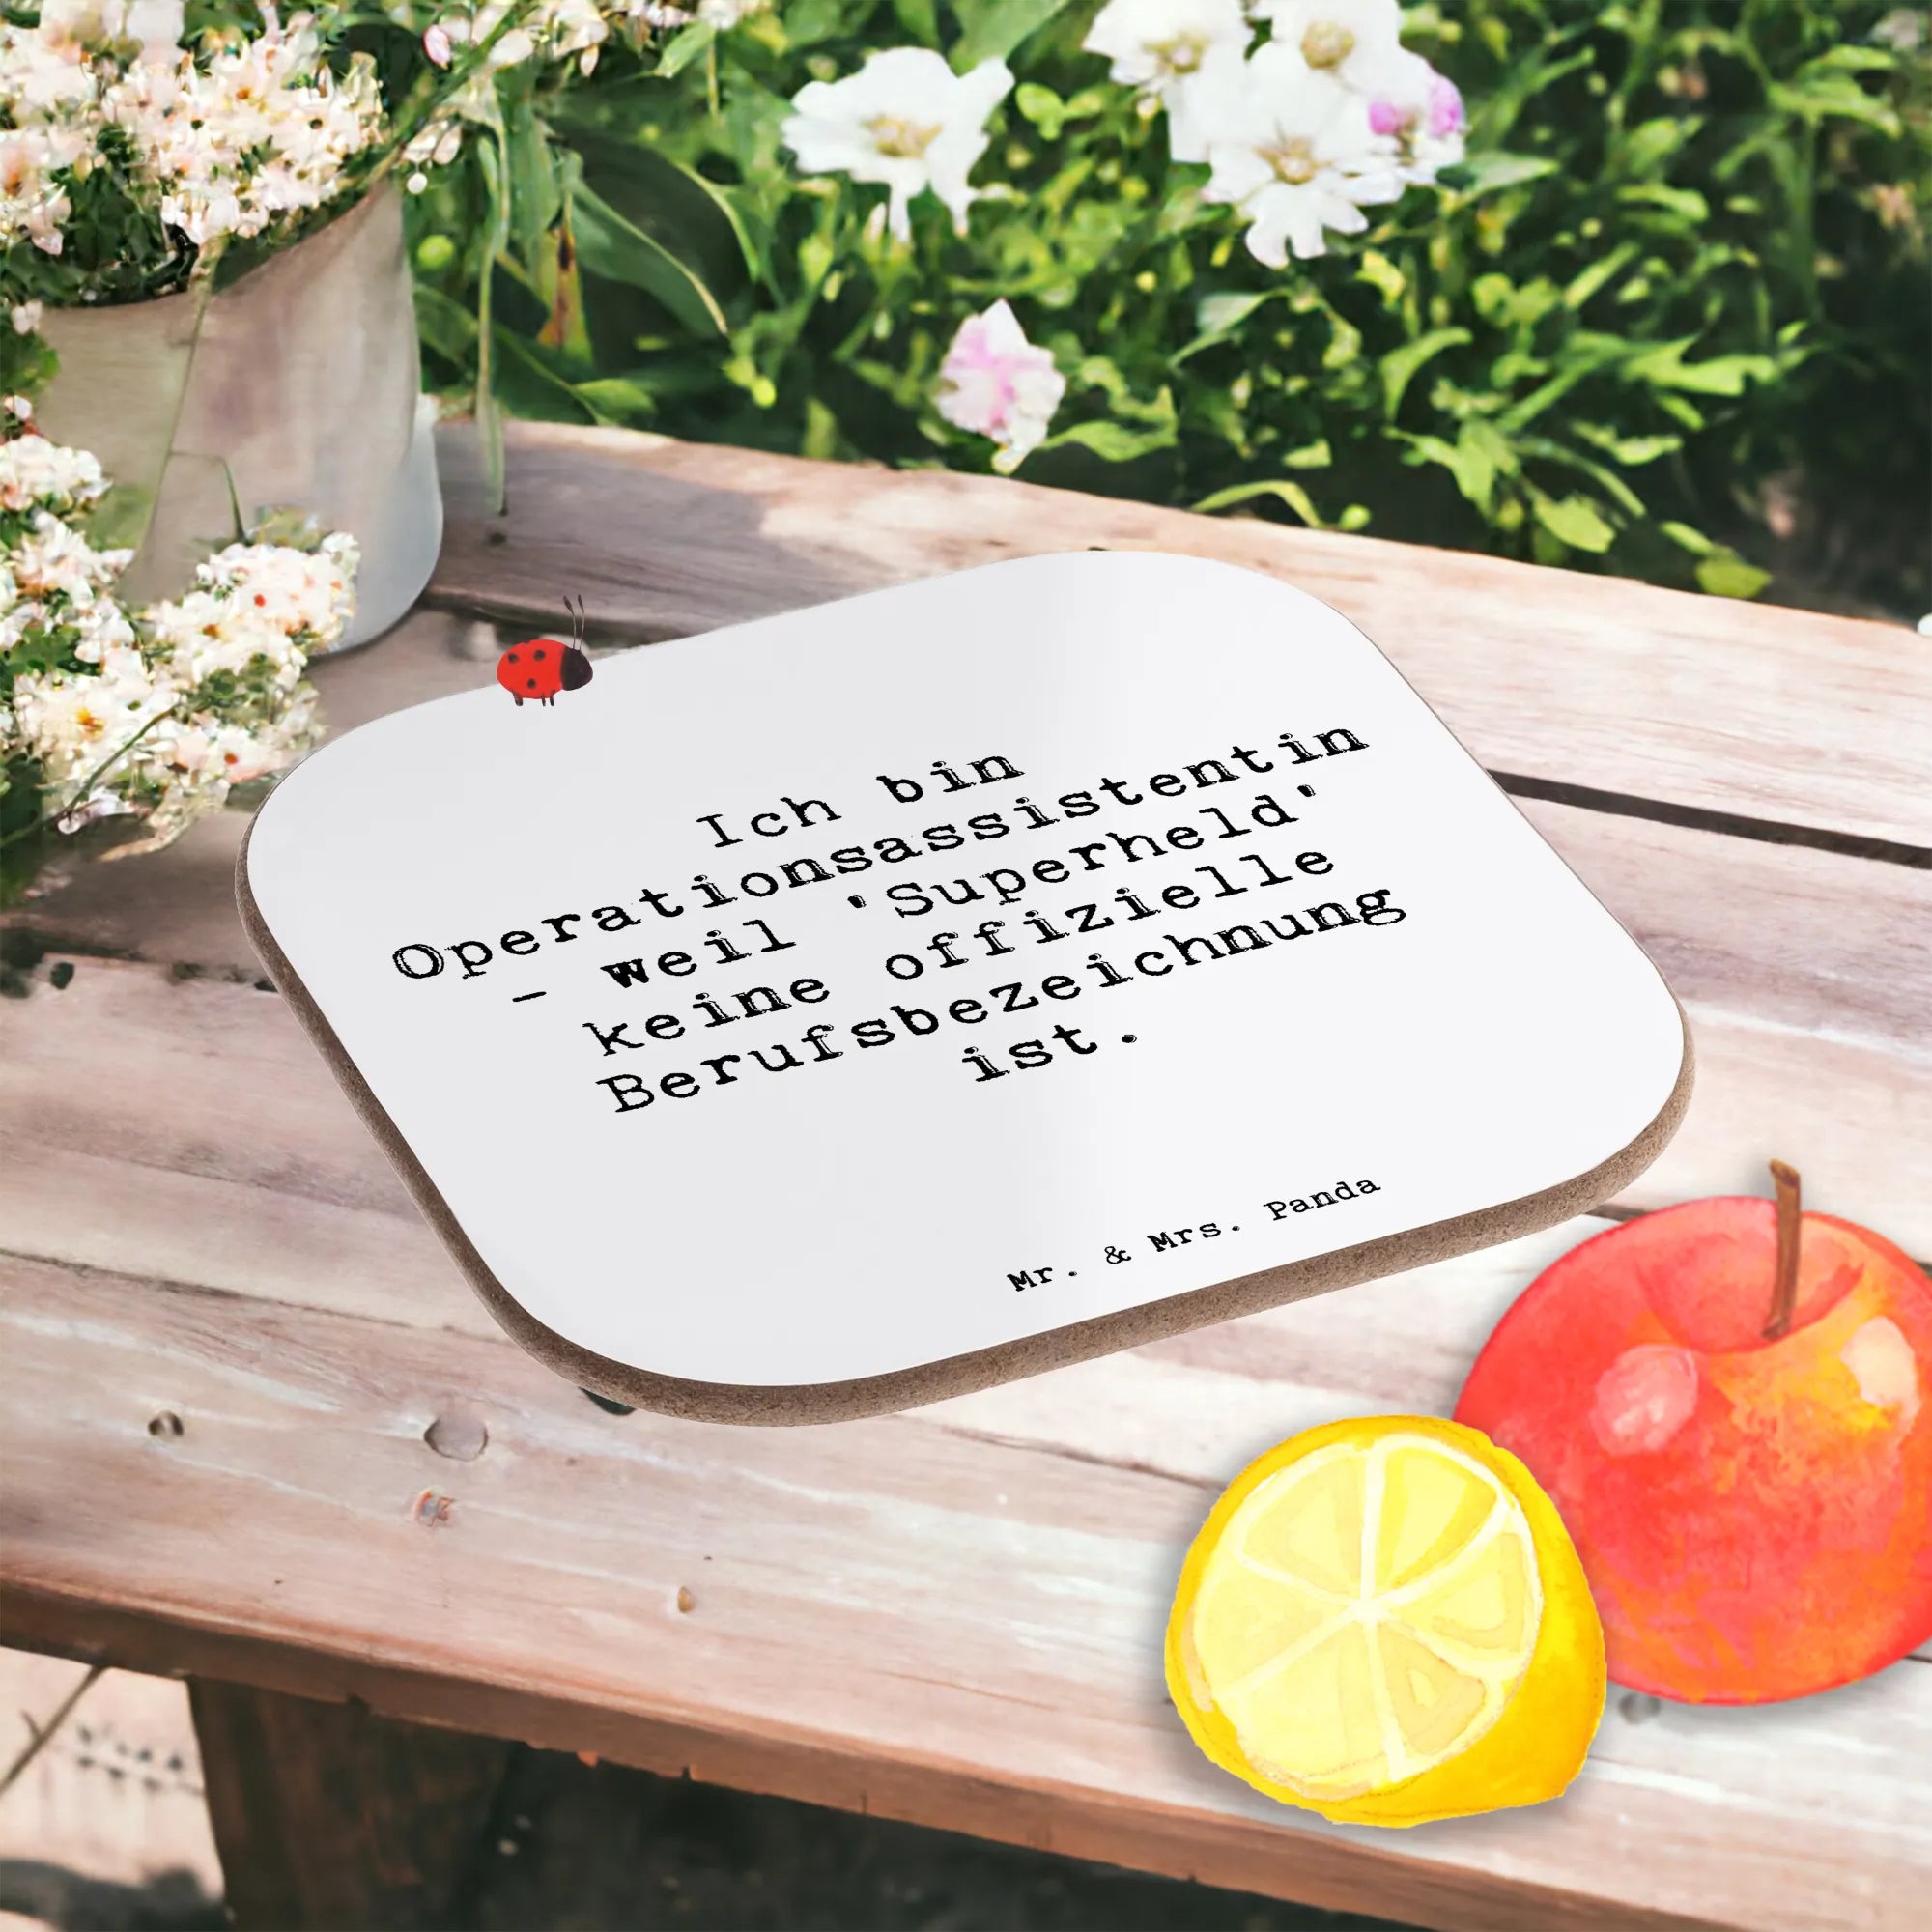 Ich bin
Operationsassistentin
- weil 'Superheld'
keine offizielle
Berufsbezeichnung
ist.
Mr. & Mrs. Panda